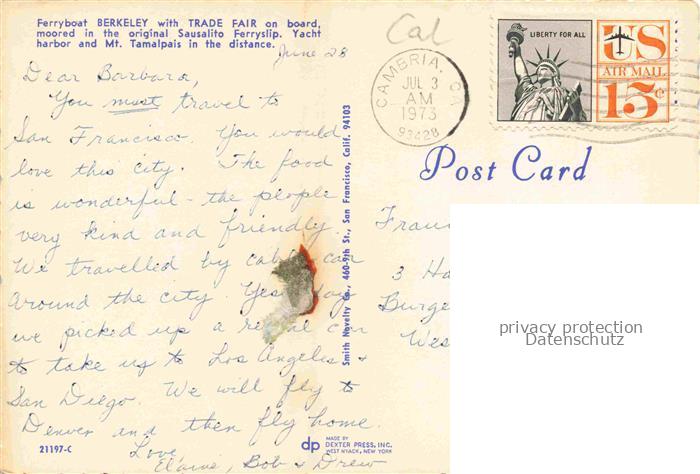 Ferryboat BERKELEY with TRADE FAIR on board,
moored in the original Sausalito Ferryslip. Yacht
harbor and Mt. Tamalpais in the distance.
June 28
Dear Barbara,
You must travel to
San Francisco. You would
love this city. The food
is wonderful - the people
very kind and friendly.
We travelled by cable car
around the city. Yesterday
we picked up a rental car
to take us to Los Angeles &
San Diego. We will fly to
Denver and then fly home.
Love,
Elaine, Bob & Drew
21197-C
Smith Novelty Co., 460-9th St., San Francisco, Calif. 94103
dp MADE BY
DEXTER PRESS, INC.
WEST NYACK, NEW YORK
Cal
CAMBRIA, CA
JUL 3
AM
1973
93428
LIBERTY FOR ALL
US
AIR MAIL
15¢
Post Card
3
Wes
privacy protection
Datenschutz